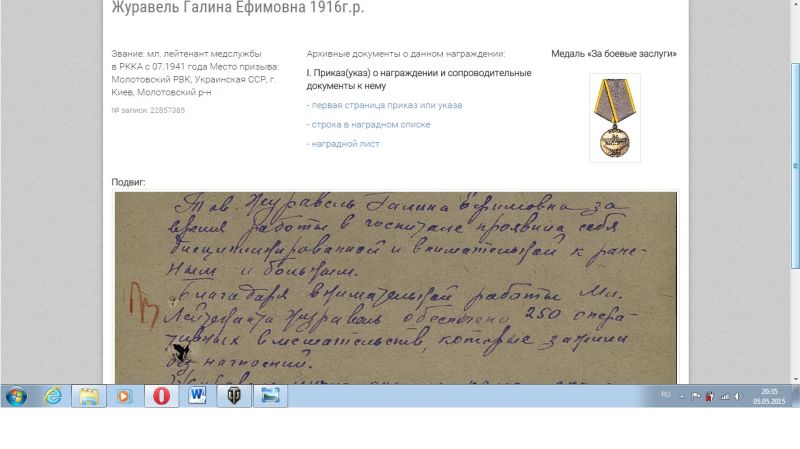 Журавель Галина Ефимовна 1916г.р.
Звание: мл. лейтенант медслужбы
в РККА с 07.1941 года Место призыва:
Молотовский РВК, Украинская ССР, г.
Киев, Молотовский р-н
№ записи: 22857385
Архивные документы о данном награждении:
I. Приказ(указ) о награждении и сопроводительные
документы к нему
- первая страница приказ или указа
- строка в наградном списке
- наградной лист
Медаль «За боевые заслуги»
Подвиг:
Тов. Журавель Галина Ефимовна за
время работы в госпитале проявила себя
дисциплинированной и внимательной к ране-
ным и больным.
Благодаря внимательной работы Мл.
Лейтенанта Журавель обеспечено 250 опера-
тивных вмешательств, которые зажили
без нагноений.
RU
20:35
05.05.2015